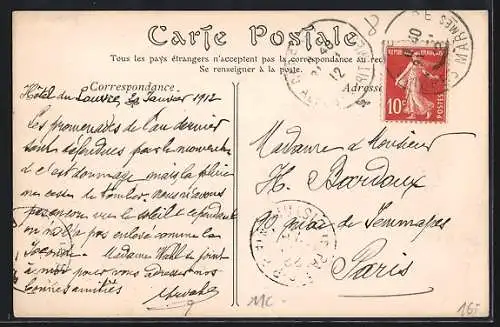 Carte Postale
Tous les pays étrangers n'acceptent pas la correspondance au recto
Se renseigner à la poste.
Correspondance
Adresse
Hôtel du Louvre, Janvier 1912
Les promenades de l'an dernier
sont défendues pour le moment
et c'est dommage mais la pluie
ne cesse de tomber. Nous n'avons
pas vu le soleil et cependant
on n'est pas enclose comme la
Joconde. Madame Wahl se joint
à moi pour vous adresser nos
bonnes amitiés
Madame et Monsieur
H. Bardoux
90 quai de Jemmapes
Paris
RÉPUBLIQUE FRANÇAISE
10c
POSTES
MC-
16-